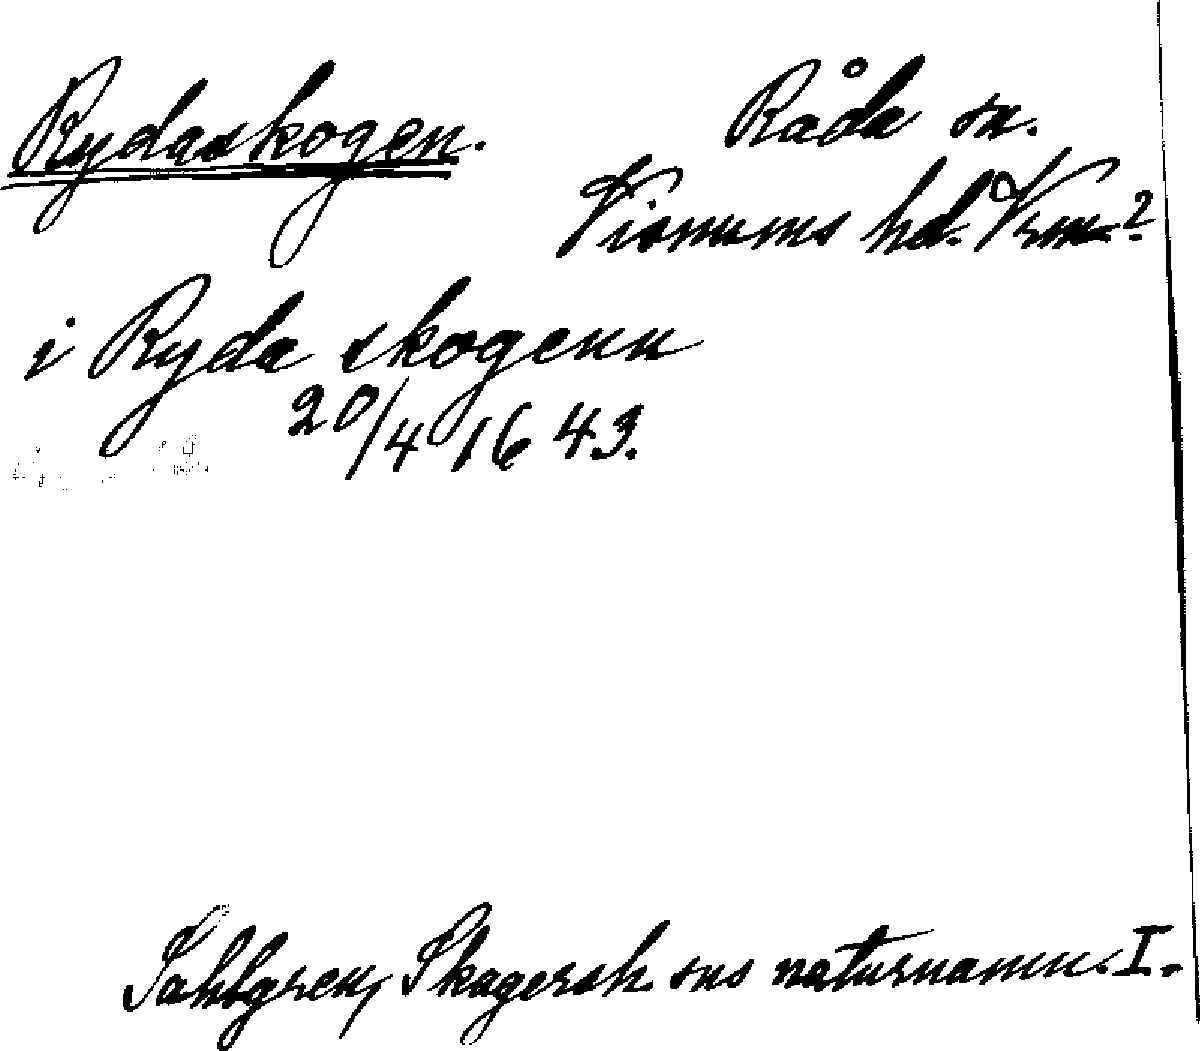 Rydaskogen.
Råda sn.
Visnums hd. Vrm.?
i Ryda skogenn
20/4 1643.
Sahlgren, Skagersh. sns naturnamn. I.